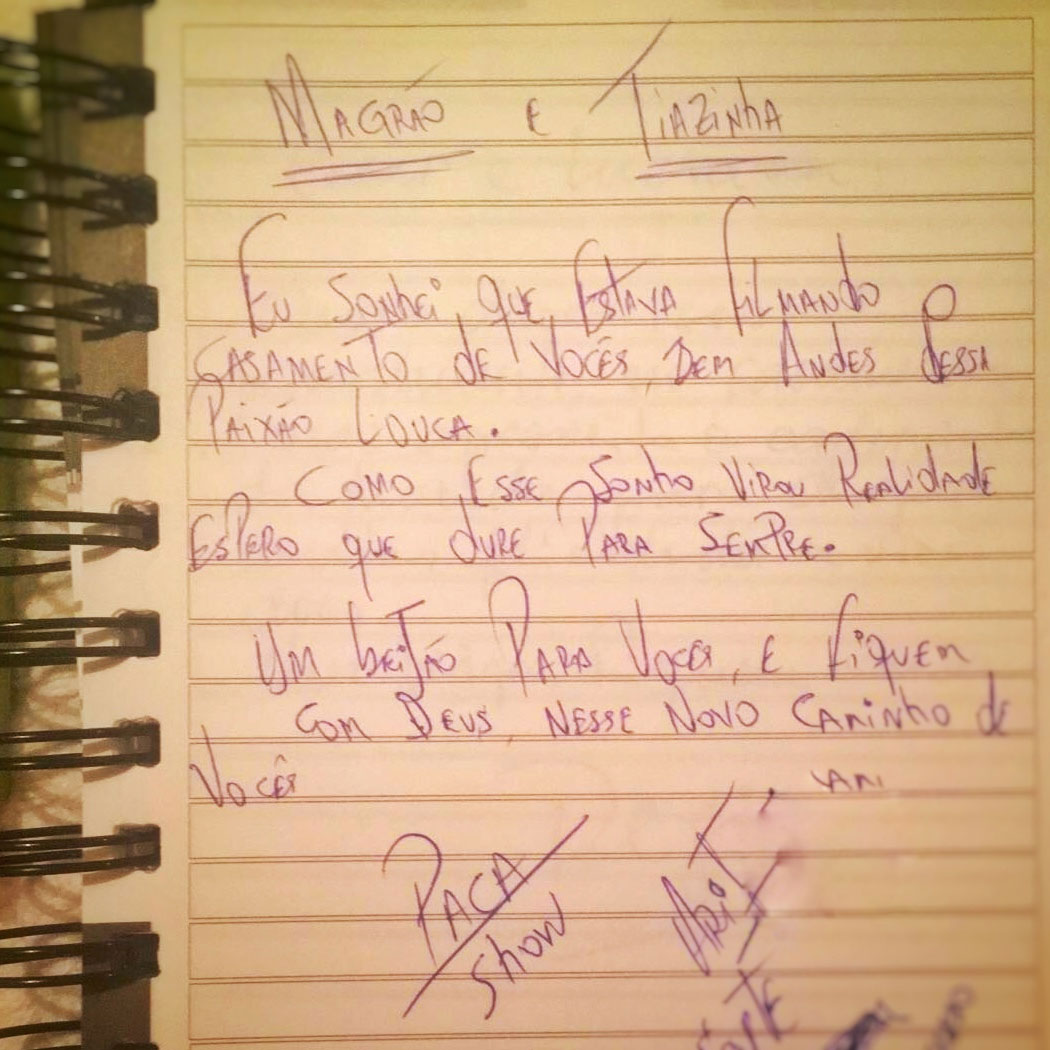 MAGRÃO E TIAZINHA
EU SONHEI, QUE, ESTAVA FILMANDO O
CASAMENTO DE VOCÊS, BEM ANDES DESSA
PAIXÃO LOUCA.
COMO ESSE SONHO VIROU REALIDADE
ESPERO QUE DURE PARA SEMPRE.
UM BEIJÃO PARA VOCÊS, E FIQUEM
COM DEUS, NESSE NOVO CAMINHO DE
VOCÊS
PACA
SHOW